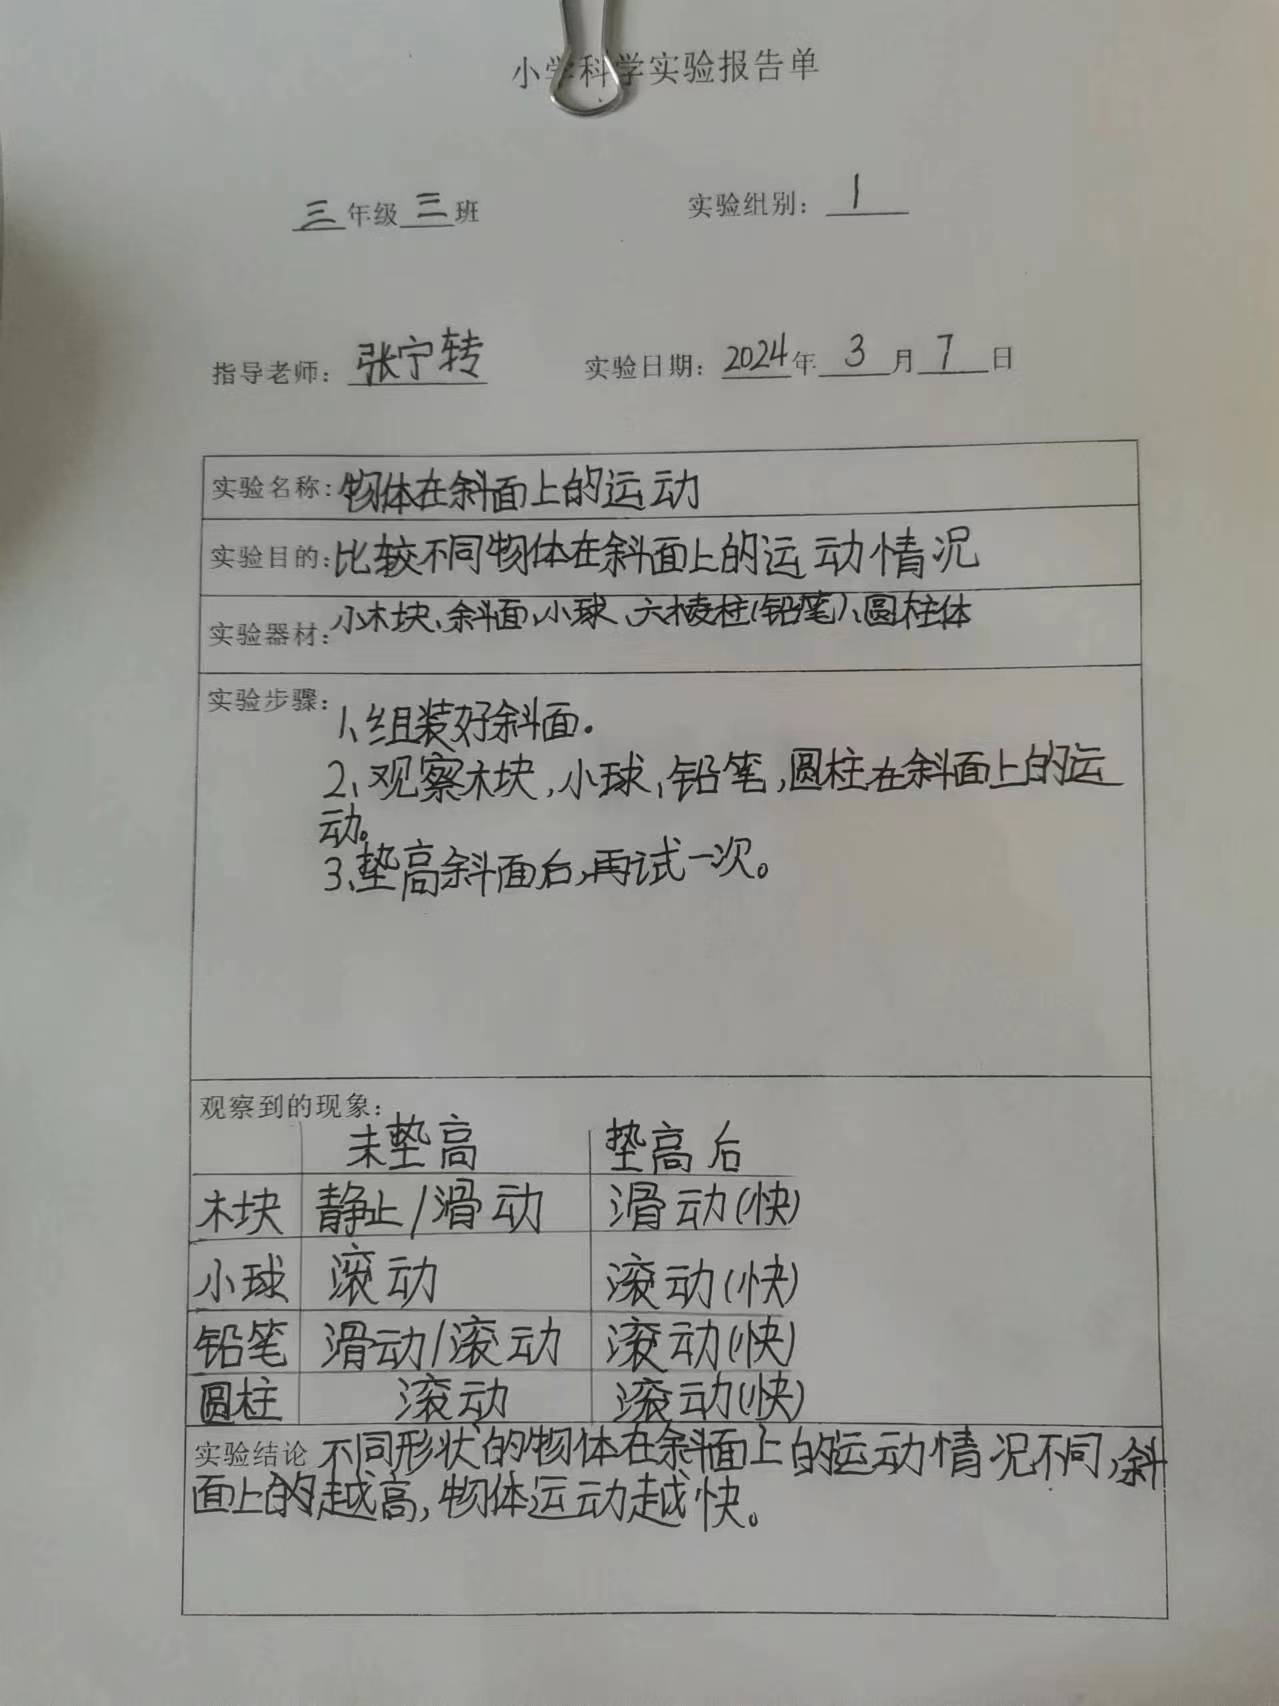 小学科学实验报告单
三年级三班 实验组别：1
指导老师：张宁转 实验日期：2024年3月7日
实验名称：物体在斜面上的运动
实验目的：比较不同物体在斜面上的运动情况
实验器材：小木块、斜面、小球、六棱柱(铅笔)、圆柱体
实验步骤：
1、组装好斜面。
2、观察木块，小球，铅笔，圆柱在斜面上的运
动。
3、垫高斜面后，再试一次。
观察到的现象：
未垫高 垫高后
木块 静止/滑动 滑动(快)
小球 滚动 滚动(快)
铅笔 滑动/滚动 滚动(快)
圆柱 滚动 滚动(快)
实验结论 不同形状的物体在斜面上的运动情况不同，斜
面上的越高，物体运动越快。